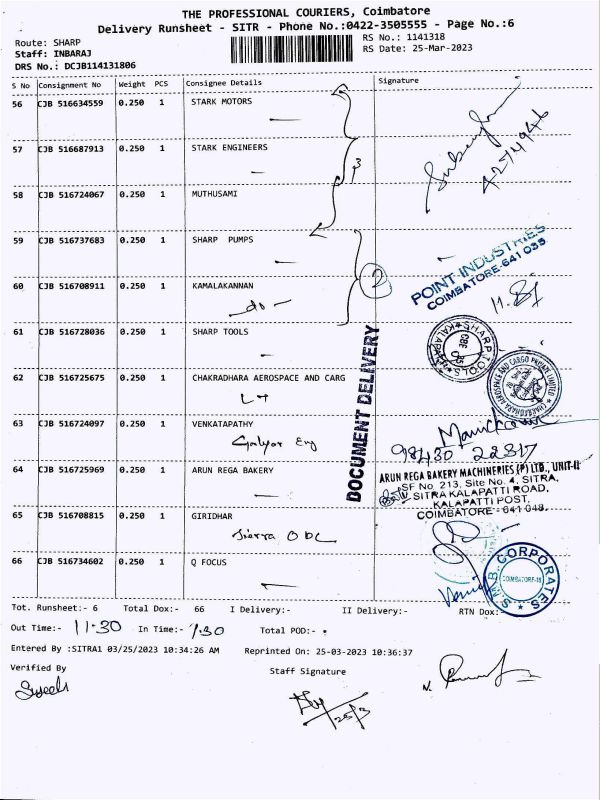 THE PROFESSIONAL COURIERS, Coimbatore
Delivery Runsheet - SITR - Phone No.:0422-3505555 - Page No.:6
Route: SHARP
RS No.: 1141318
Staff: INBARAJ
RS Date: 25-Mar-2023
DRS No.: DCJB114131806
S No Consignment No Weight PCS Consignee Details Signature
56 CJB 516634559 0.250 1 STARK MOTORS
57 CJB 516687913 0.250 1 STARK ENGINEERS
4274946
58 CJB 516724067 0.250 1 MUTHUSAMI
59 CJB 516737683 0.250 1 SHARP PUMPS
POINT INDUSTRIES
COIMBATORE-641 035
2
60 CJB 516708911 0.250 1 KAMALAKANNAN
-do-
61 CJB 516728036 0.250 1 SHARP TOOLS
SHARP TOOLS
62 CJB 516725675 0.250 1 CHAKRADHARA AEROSPACE AND CARG
CHAKRADHARA AEROSPACE AND CARGO PRIVATE LIMITED
DOCUMENT DELIVERY
63 CJB 516724097 0.250 1 VENKATAPATHY
98430 22317
64 CJB 516725969 0.250 1 ARUN REGA BAKERY
ARUN REGA BAKERY MACHINERIES (P) LTD., UNIT-II
SF No. 213, Site No. 4, SITRA,
SITRA KALAPATTI ROAD,
KALAPATTI POST,
COIMBATORE - 641 048.
65 CJB 516708815 0.250 1 GIRIDHAR
Sierra ODC
66 CJB 516734602 0.250 1 Q FOCUS
S.M.B. CORPORATES
COIMBATORE-15
Tot. Runsheet:- 6 Total Dox:- 66 I Delivery:- II Delivery:- RTN Dox:-
Out Time:- 11.30 In Time:- 1.30 Total POD:-
Entered By :SITRA1 03/25/2023 10:34:26 AM Reprinted On: 25-03-2023 10:36:37
Verified By Staff Signature
25/3